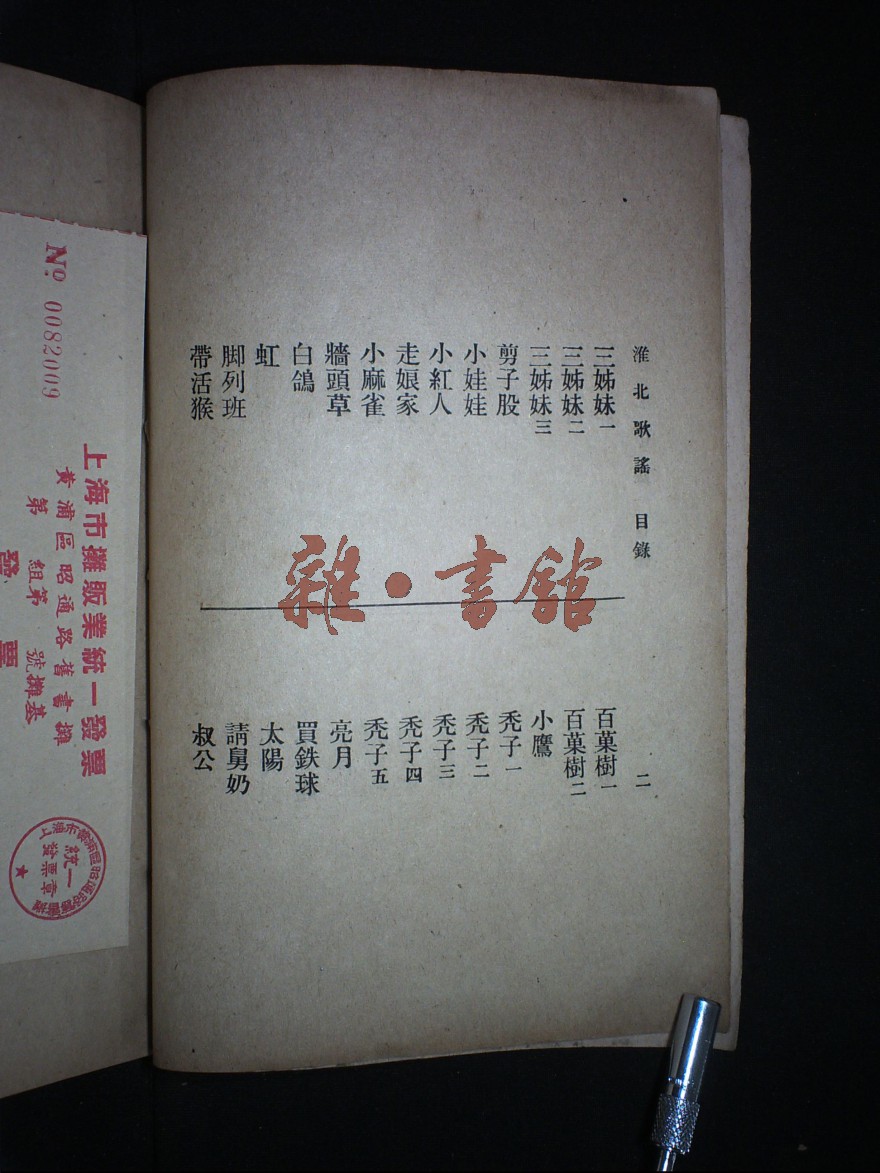 淮北歌謠 目錄 二
三姊妹一
三姊妹二
三姊妹三
剪子股
小娃娃
小紅人
走娘家
小麻雀
牆頭草
白鴿
虹
脚列班
帶活猴
百菓樹一
百菓樹二
小鷹
禿子一
禿子二
禿子三
禿子四
禿子五
亮月
買鉄球
太陽
請舅奶
叔公
雜·書館
No. 0082009
上海市攤販業統一發票
黃浦區昭通路舊書攤
第 組第 號攤基
發 票
統一
發票章